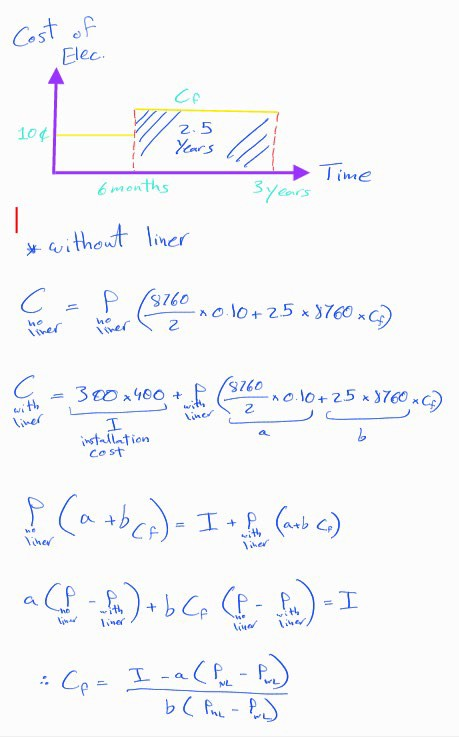 Cost of
Elec.
Cf
10¢
2.5
Years
Time
6 months
3 years
* without liner
C no liner = P no liner (8760/2 × 0.10 + 2.5 × 8760 × Cf)
C with liner = 300 × 400 + P with liner (8760/2 × 0.10 + 2.5 × 8760 × Cf)
I
installation
cost
a
b
P no liner (a + b Cf) = I + P with liner (a+b Cf)
a (P no liner - P with liner) + b Cf (P no liner - P with liner) = I
∴ Cf = I - a (PNL - PWL) / b (PNL - PWL)